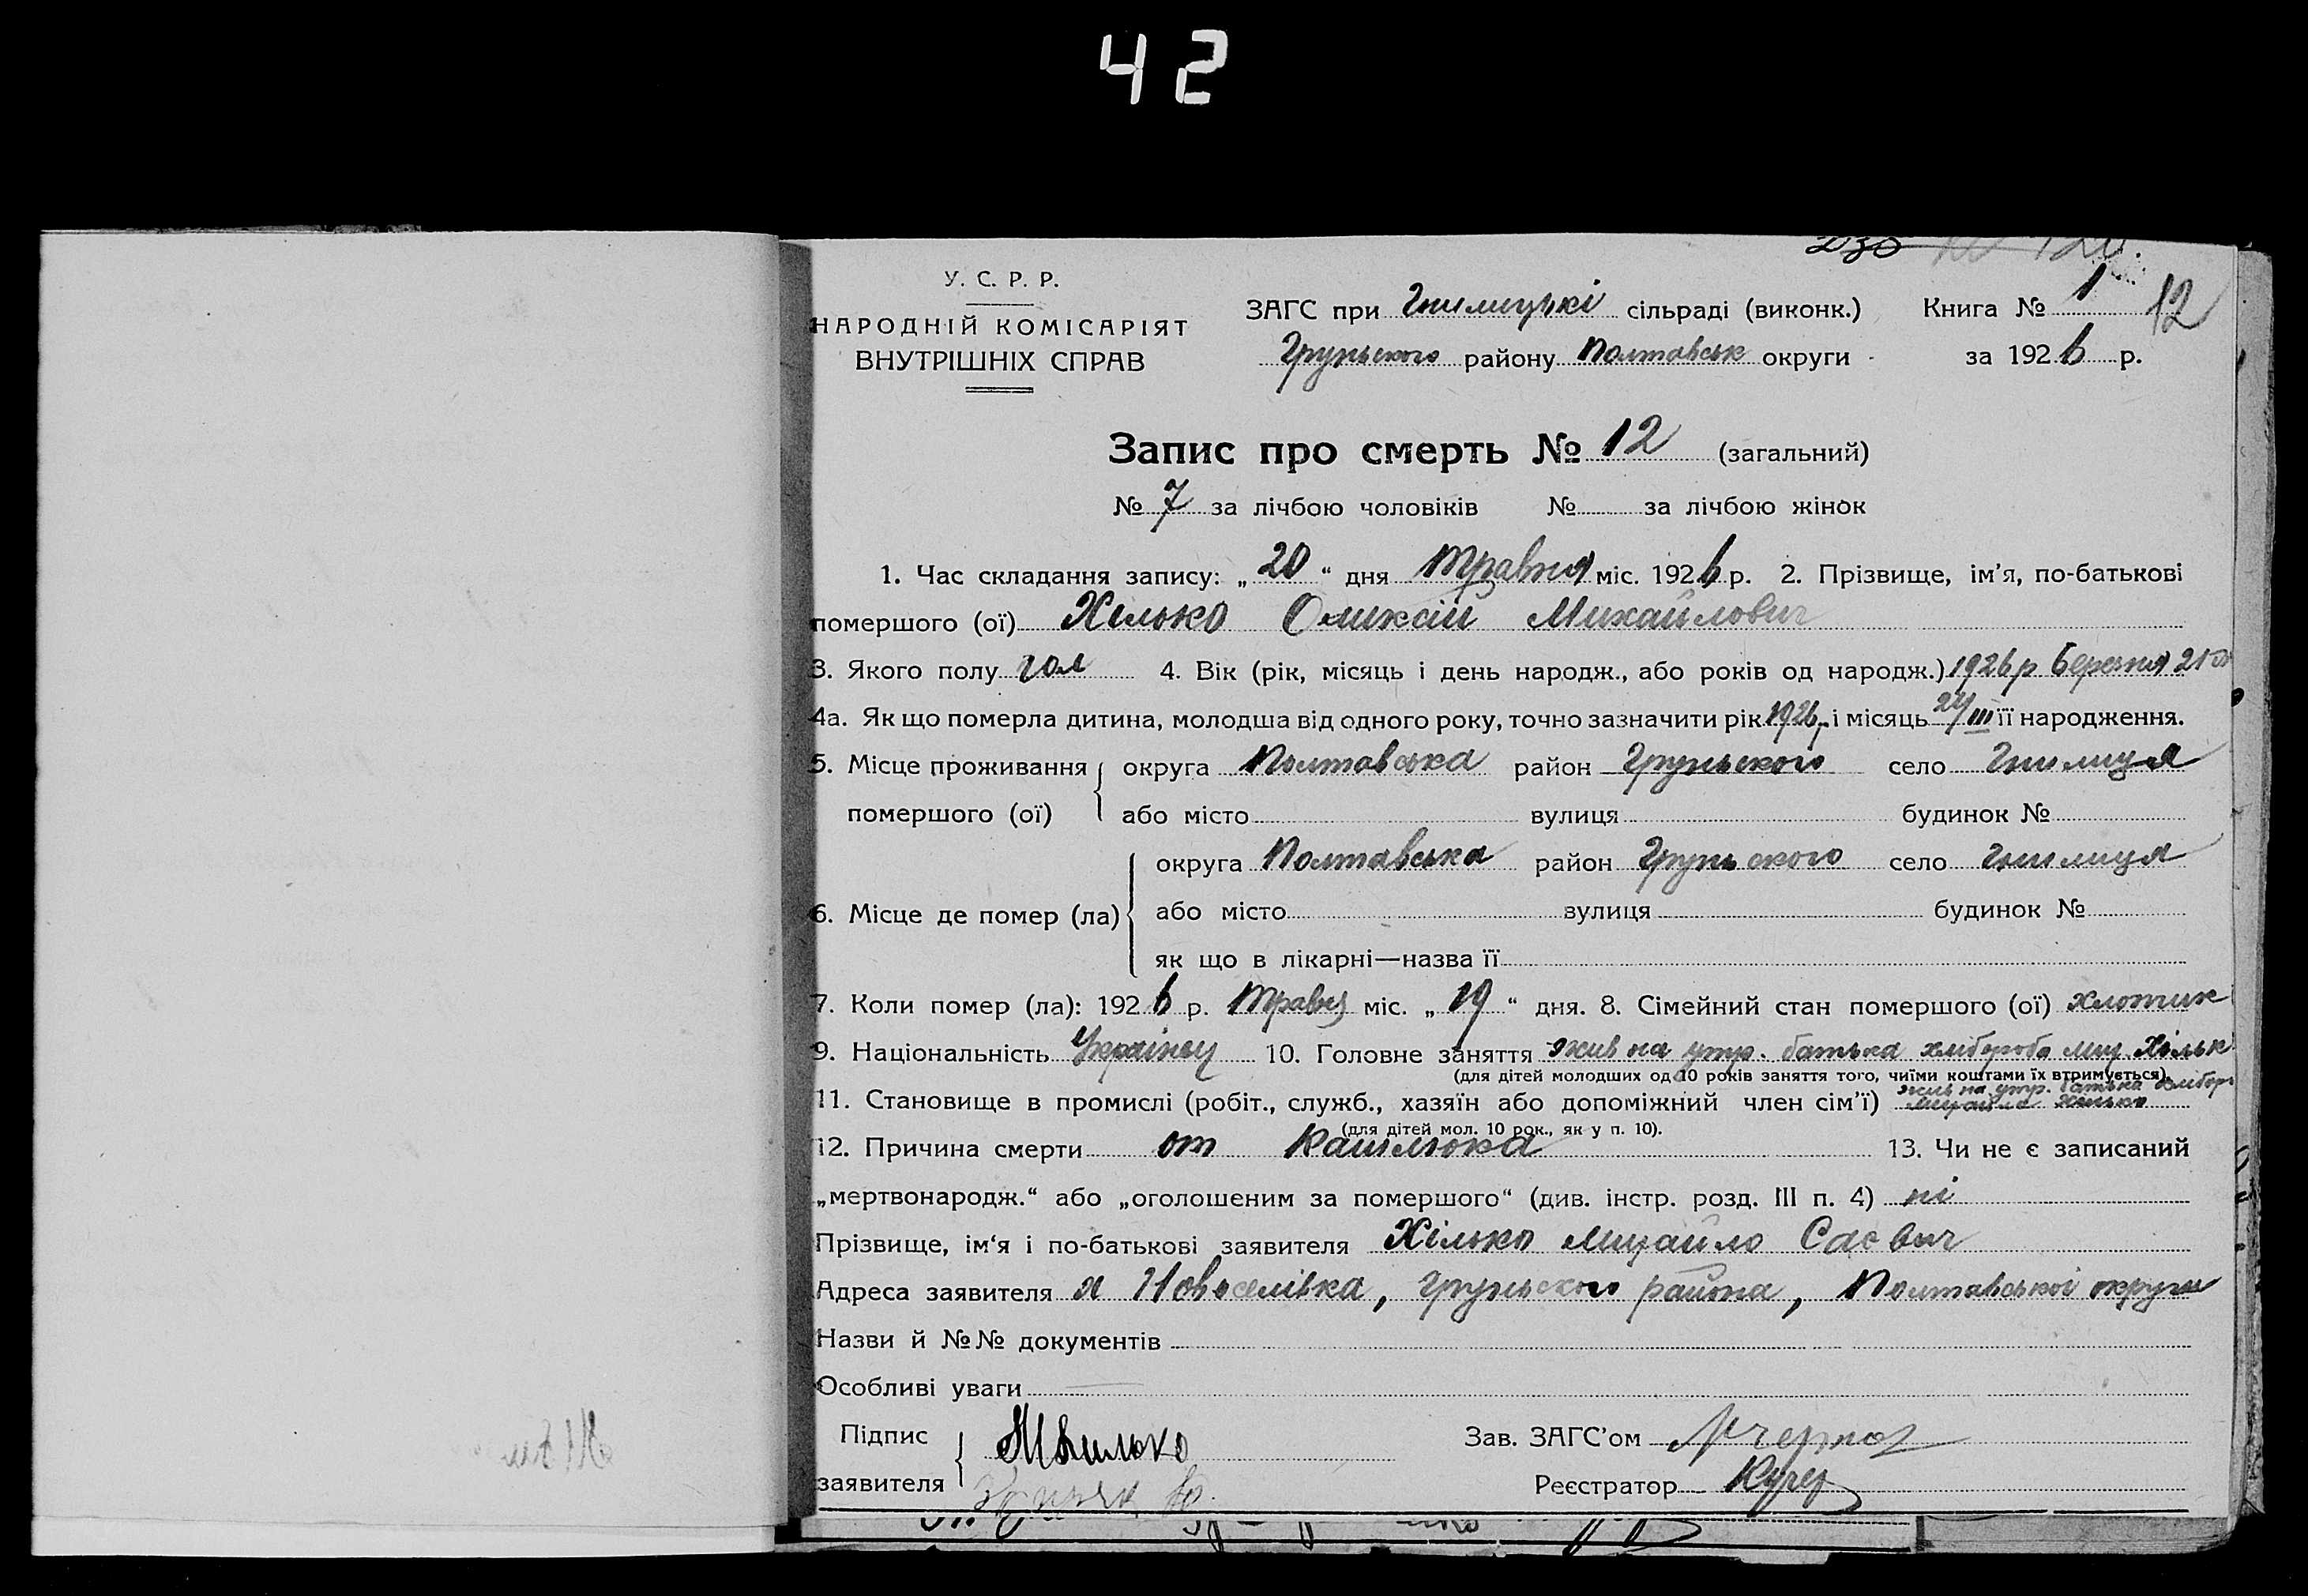 42
У. С. Р. Р.
НАРОДНІЙ КОМІСАРІЯТ
ВНУТРІШНІХ СПРАВ
ЗАГС при Гнилицькі сільраді (виконк.) Книга № 1 12
Груньского району Полтавськ округи за 1926 р.
Запис про смерть № 12 (загальний)
№ 7 за лічбою чоловіків № за лічбою жінок
1. Час складання запису: „20“ дня Травня міс. 1926 р. 2. Прізвище, ім’я, по-батькові
помершого (ої) Хілько Оликсій Михайлович
3. Якого полу чол 4. Вік (рік, місяць і день народж., або років од народж.) 1926 р Березня 21го
4а. Як що померла дитина, молодша від одного року, точно зазначити рік 1926 р і місяць 24/III її народження.
5. Місце проживання округа Полтавська район Груньского село Гнилиця
помершого (ої) або місто вулиця будинок №
округа Полтавська район Груньского село Гнилиця
6. Місце де помер (ла) або місто вулиця будинок №
як що в лікарні—назва її
7. Коли помер (ла): 1926 р. Травня міс. „19“ дня. 8. Сімейний стан помершого (ої) хлопчик
9. Національність Українец 10. Головне заняття жив на утр. батька хлібороба Мих. Хільк
(для дітей молодших од 10 років заняття того, чиїми коштами їх втримується).
11. Становище в промислі (робіт., служб., хазяїн або допоміжний член сім’ї) жив на утр. батька хлібор
Михайла Хілька
(для дітей мол. 10 рок., як у п. 10).
12. Причина смерти от Кашлюка 13. Чи не є записаний
„мертвонародж.“ або „оголошеним за помершого“ (див. інстр. розд. III п. 4) ні
Прізвище, ім‘я і по-батькові заявителя Хілько Михайло Савич
Адреса заявителя х Новоселівка, Груньского района, Полтавської округи
Назви й №№ документів
Особливі уваги
Підпис
заявителя М Хилько
Зав. ЗАГС’ом
Реєстратор Кучер